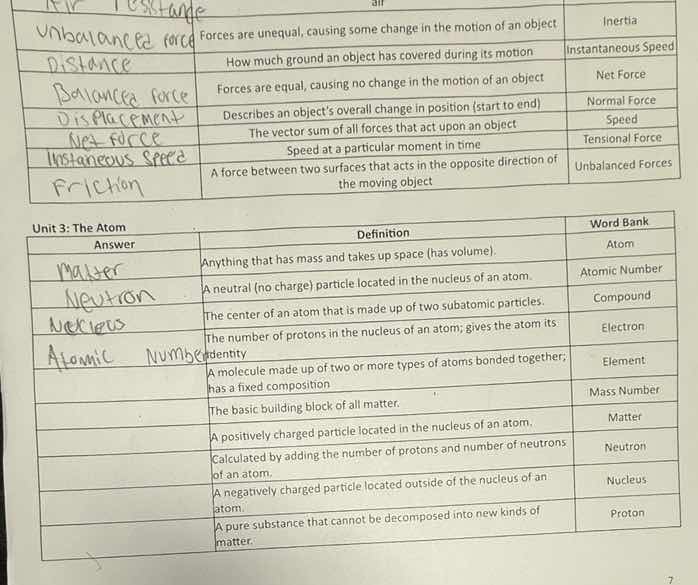 Air resstange air
Unbalanced force Forces are unequal, causing some change in the motion of an object Inertia
Distance How much ground an object has covered during its motion Instantaneous Speed
Balanced force Forces are equal, causing no change in the motion of an object Net Force
Displacement Describes an object's overall change in position (start to end) Normal Force
Net force The vector sum of all forces that act upon an object Speed
Instaneous Speed Speed at a particular moment in time Tensional Force
Friction A force between two surfaces that acts in the opposite direction of Unbalanced Forces
the moving object
Unit 3: The Atom
Answer Definition Word Bank
Matter Anything that has mass and takes up space (has volume). Atom
Neutron A neutral (no charge) particle located in the nucleus of an atom. Atomic Number
Nucleus The center of an atom that is made up of two subatomic particles. Compound
Atomic Number The number of protons in the nucleus of an atom; gives the atom its Electron
identity
A molecule made up of two or more types of atoms bonded together; Element
has a fixed composition
The basic building block of all matter. Mass Number
A positively charged particle located in the nucleus of an atom. Matter
Calculated by adding the number of protons and number of neutrons Neutron
of an atom.
A negatively charged particle located outside of the nucleus of an Nucleus
atom.
A pure substance that cannot be decomposed into new kinds of Proton
matter.
7